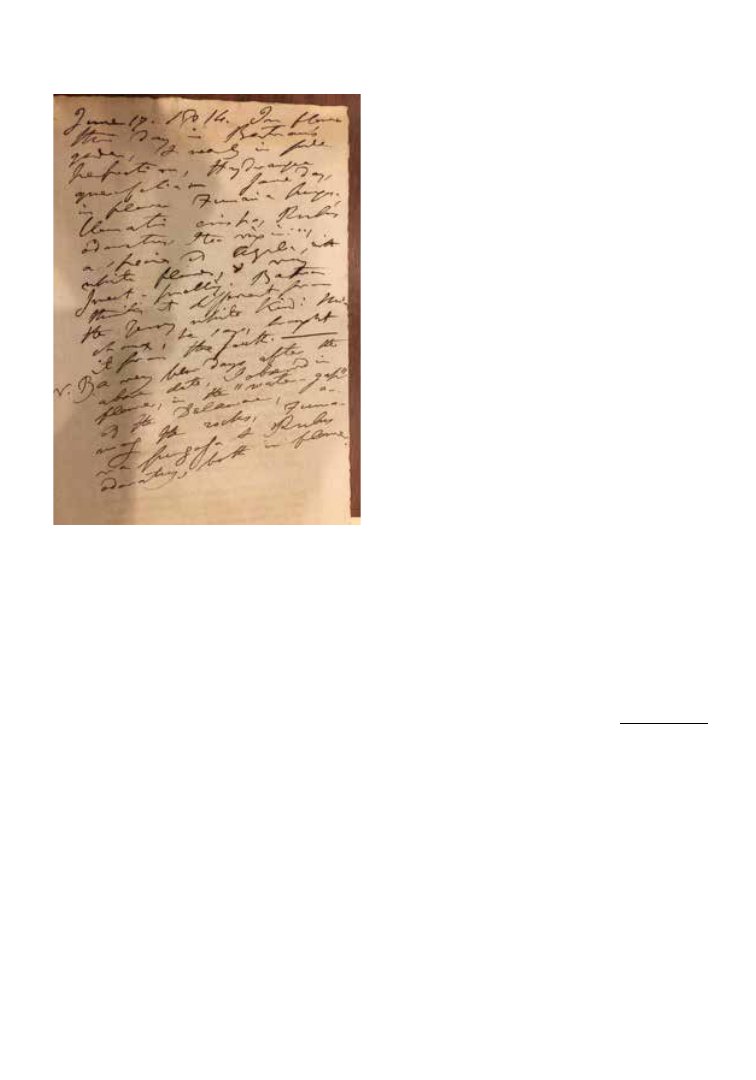 June 17. 1814. In flower
this day in Bartram's
garden, & nearly in full
perfection, Hydrangea
quercifolia. Same day,
in flower Fumaria fungo.
Clematis crispa, Rubus
odoratus, Itea virginica,
a species of Azalea, with
white flowers, & very
sweet-smelling. Bartram
thinks it different from
the Jersey white kind:
he says, brought
it from the South.
N.B. a very few days after the
above date, I observed in
flower, in the "water-gap"
of the Delaware, a-
mong the rocks, Fuma-
ria fungosa & Rubus
odoratus, both in flower.